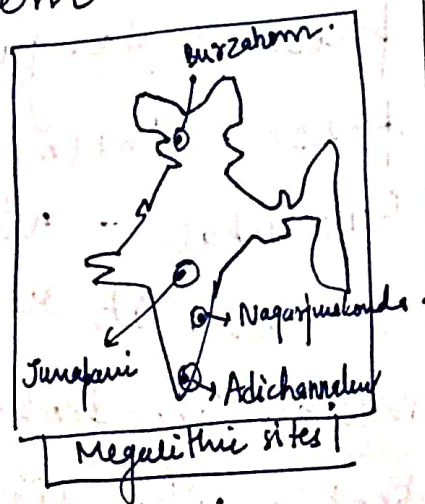 Burzahom.
Nagarjunakonda.
Junapani
Adichannelur
Megalithic sites